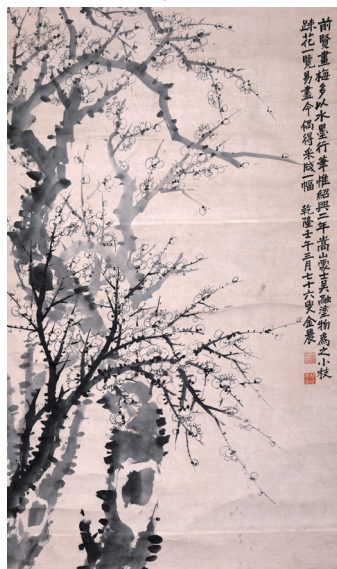 前賢畫梅多以水墨行筆惟紹興二年嵩山蒙士吴融塗物為之小枝
疎花一覽易盡今偶得采牋一幅 乾隆壬午三月七十六叟金農